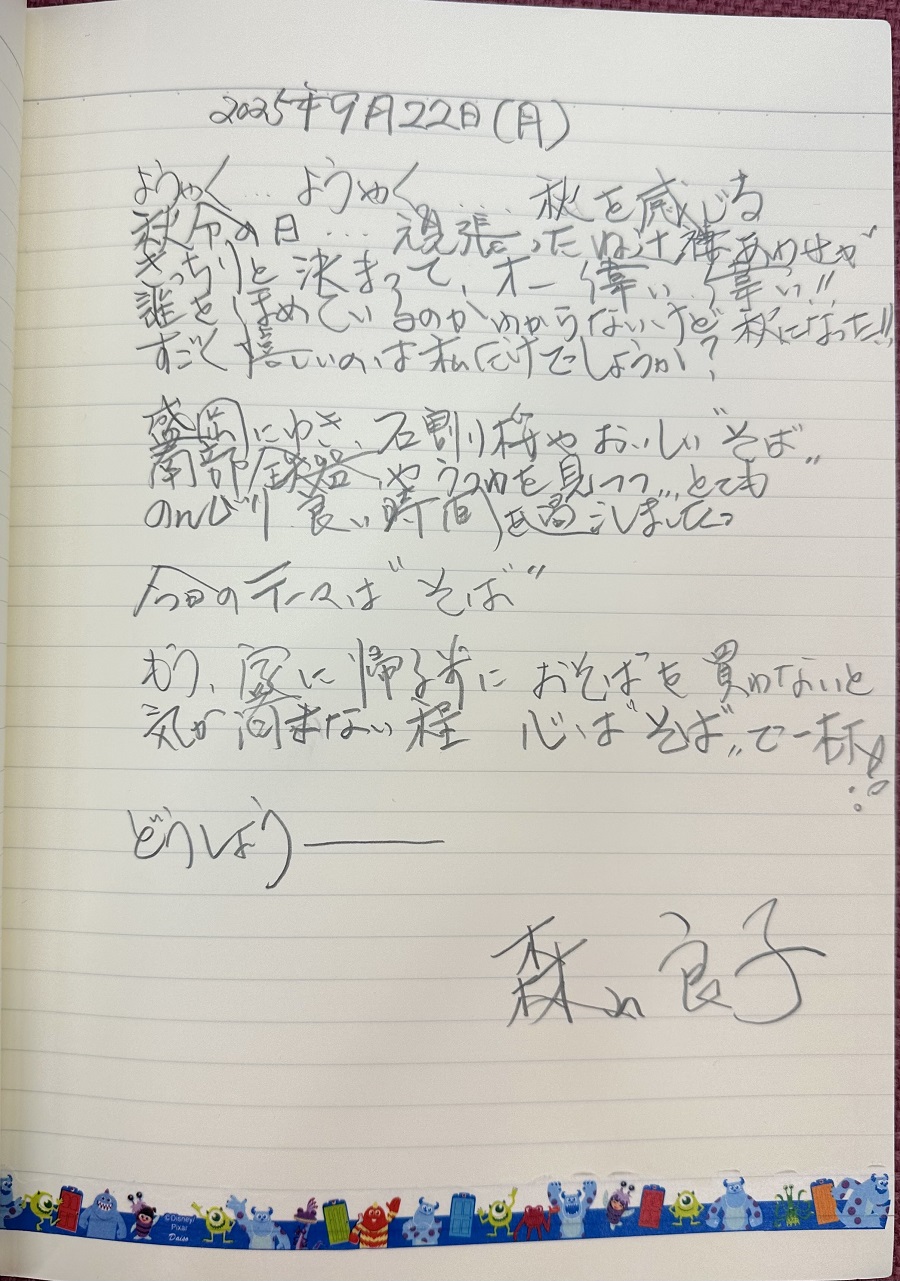 2025年9月22日(月)
ようやく… ようやく…… 秋を感じる
秋分の日… 頑張ったね!辻褄あわせが
きっちりと決まって、オー偉い、偉い!!
誰をほめているのかわからないけど 秋になった!!
すごく嬉しいのは私だけでしょうか?
盛岡にゆき、石割り桜やおいしい"そば"
南部鉄器やうつわを見つつ… とても
のんびり 良い時間を過ごしました。
今日のテーマは"そば"
もう、家に帰る前に おそばを買わないと
気が済まない程 心は"そば"で一杯
どうしよう———
森山良子
©Disney/
Pixar
Daiso